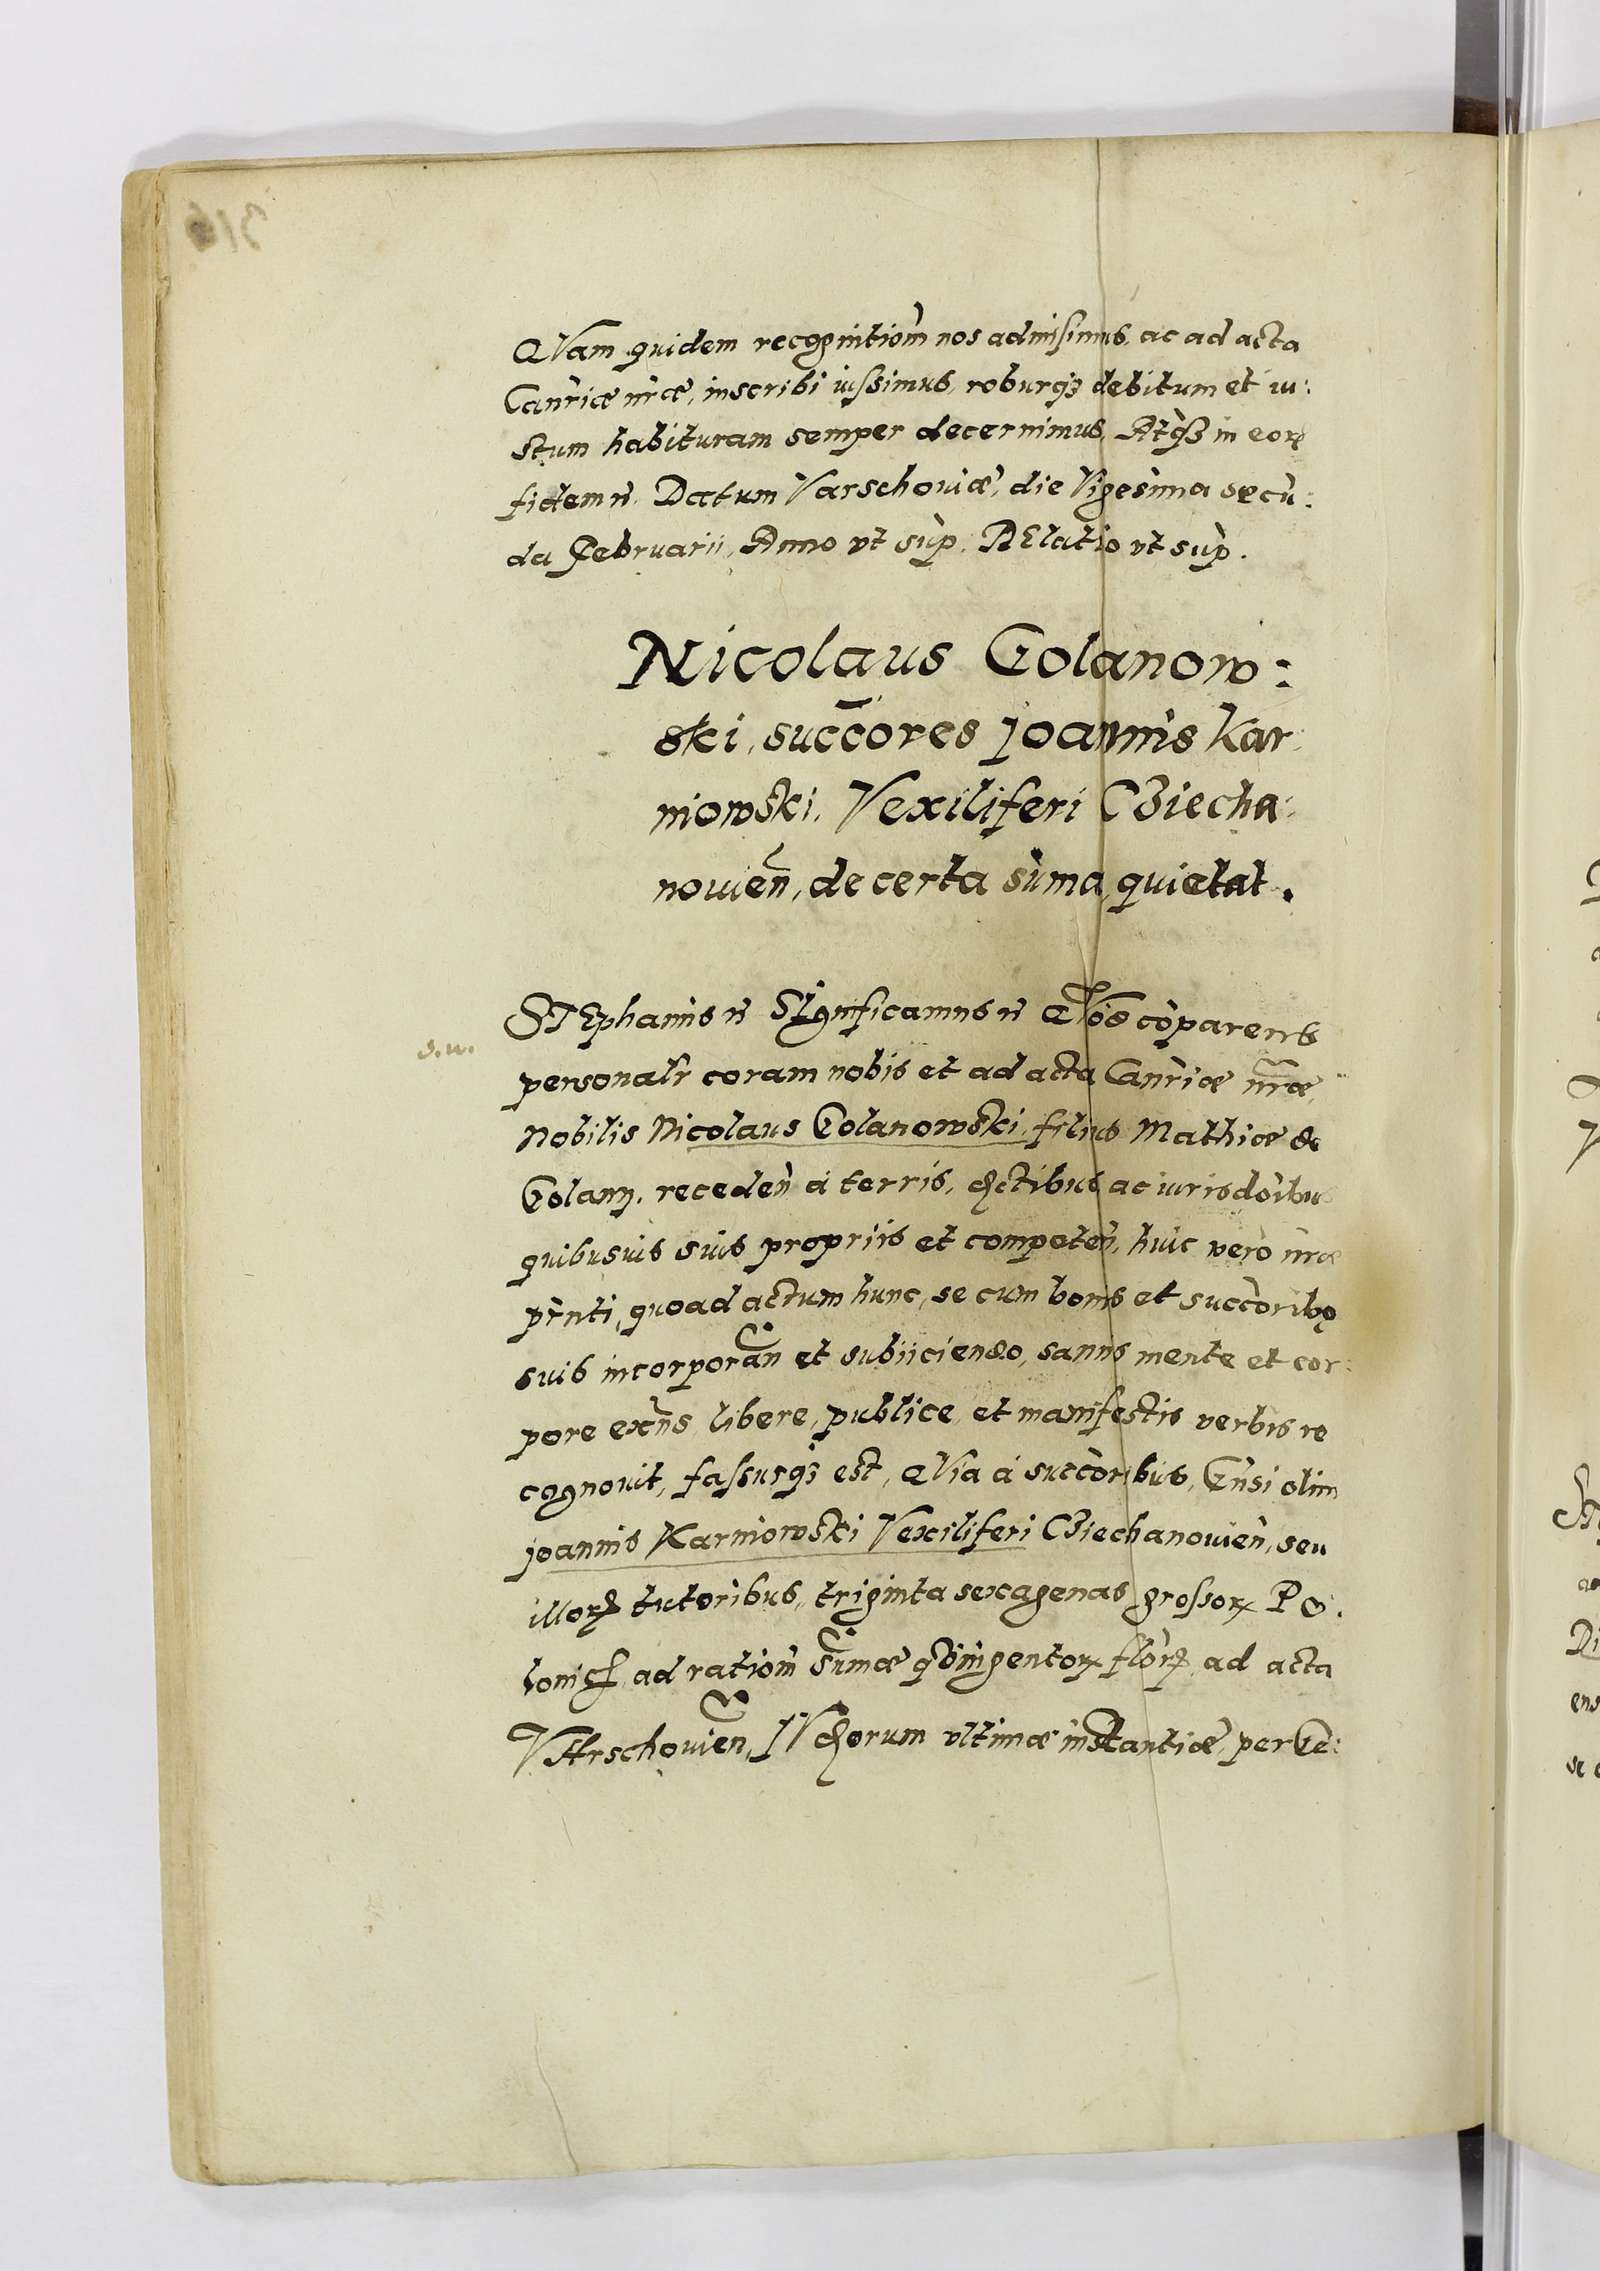 QVam quidem recognitiom̃ nos admisimus, ac ad acta
Canr̃iæ nr̃æ, inscribi iussimus, roburq3 debitum et iu:
stum habituram semper decernimus, Atq3 in eorꝫ
fidem ñ. Datum Varschoviæ, die Vigesima secũ:
da Februarii, Anno vt sup̃. RElatio vt sup̃.
Nicolaus Golanow:
ski, succ̃ores Joannis Kar:
niowski, Vexiliferi CZiecha:
novieñ, de certa sũma, quietat.
STEphanus ñ SIgnificamus ñ QVõs cõparens
s.w.
personalr̃ coram nobis et ad acta Canr̃iæ nr̃æ,
Nobilis Nicolaus Golanowski, filius Mathiæ de
Golany, recedeñ à terris, dictibus ac iurisdõibus
quibusvis suis propriis et competeñ, huic verò nr̃æ
pr̃nti, quoad actum hunc, se cum bonis et succ̃oribꝫ
suis incorporañ et subiiciendo, sanus mente et cor:
pore exñs, libere, publice, et manifestis verbis re
cognovit, fassusq3 est, QVia à succ̃oribus, Gñsi olim
Joannis Karniowski Vexiliferi CZiechanovieñ, seu
illorꝫ tutoribus, triginta sexagenas grossorꝫ Po:
loni ad ratiom̃ sũmæ qdingentorꝫ flõrꝫ, ad acta
VArschovieñ, IVdiciorum vltimæ instantiæ, per Ge:
316